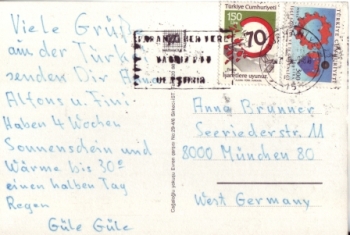 Viele Grüße
an der Türkei
senden Dir
Alfons u. Fini.
Haben 4 Wochen
Sonnenschein und
Wärme bis 30°
einen halben Tag
Regen
Güle Güle
Türkiye Cumhuriyeti
150
70
işaretlere uyunuz
Anna Brunner
Seeriederstr. 11
8000 München 80
West Germany